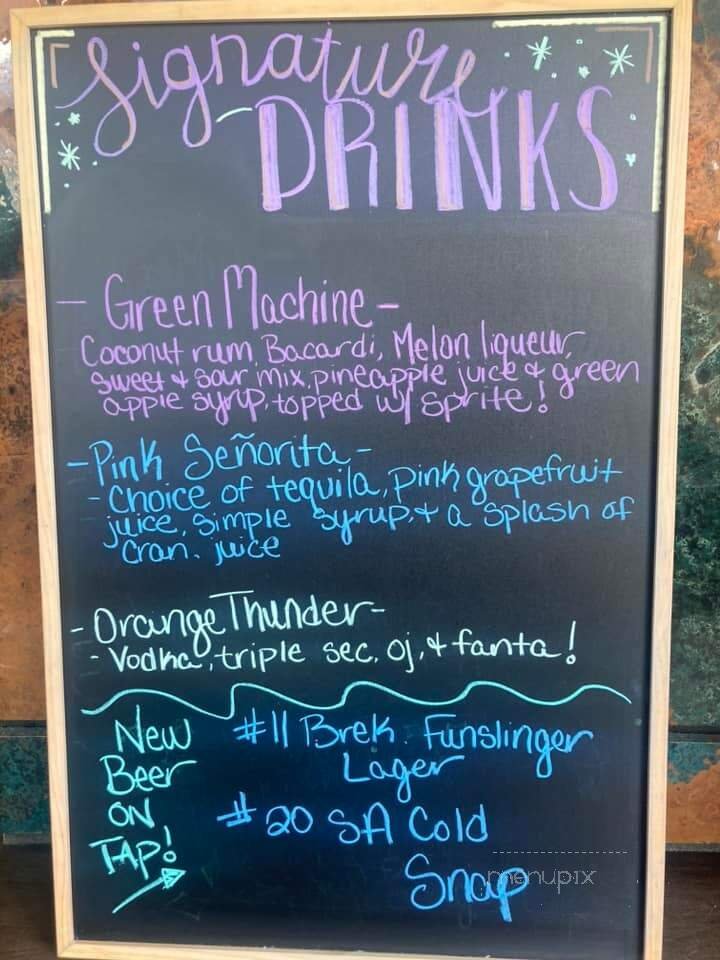 Signature
DRINKS
- Green Machine -
Coconut rum, Bacardi, Melon liqueur,
sweet & sour mix, pineapple juice & green
apple syrup, topped w/ sprite!
- Pink Señorita -
- Choice of tequila, pink grapefruit
juice, simple syrup, & a splash of
cran. juice
- Orange Thunder -
- Vodka, triple sec, oj, & fanta!
New
Beer
ON
TAP!
#11 Brek. Funslinger
Lager
#20 SA Cold
Snap
menupix